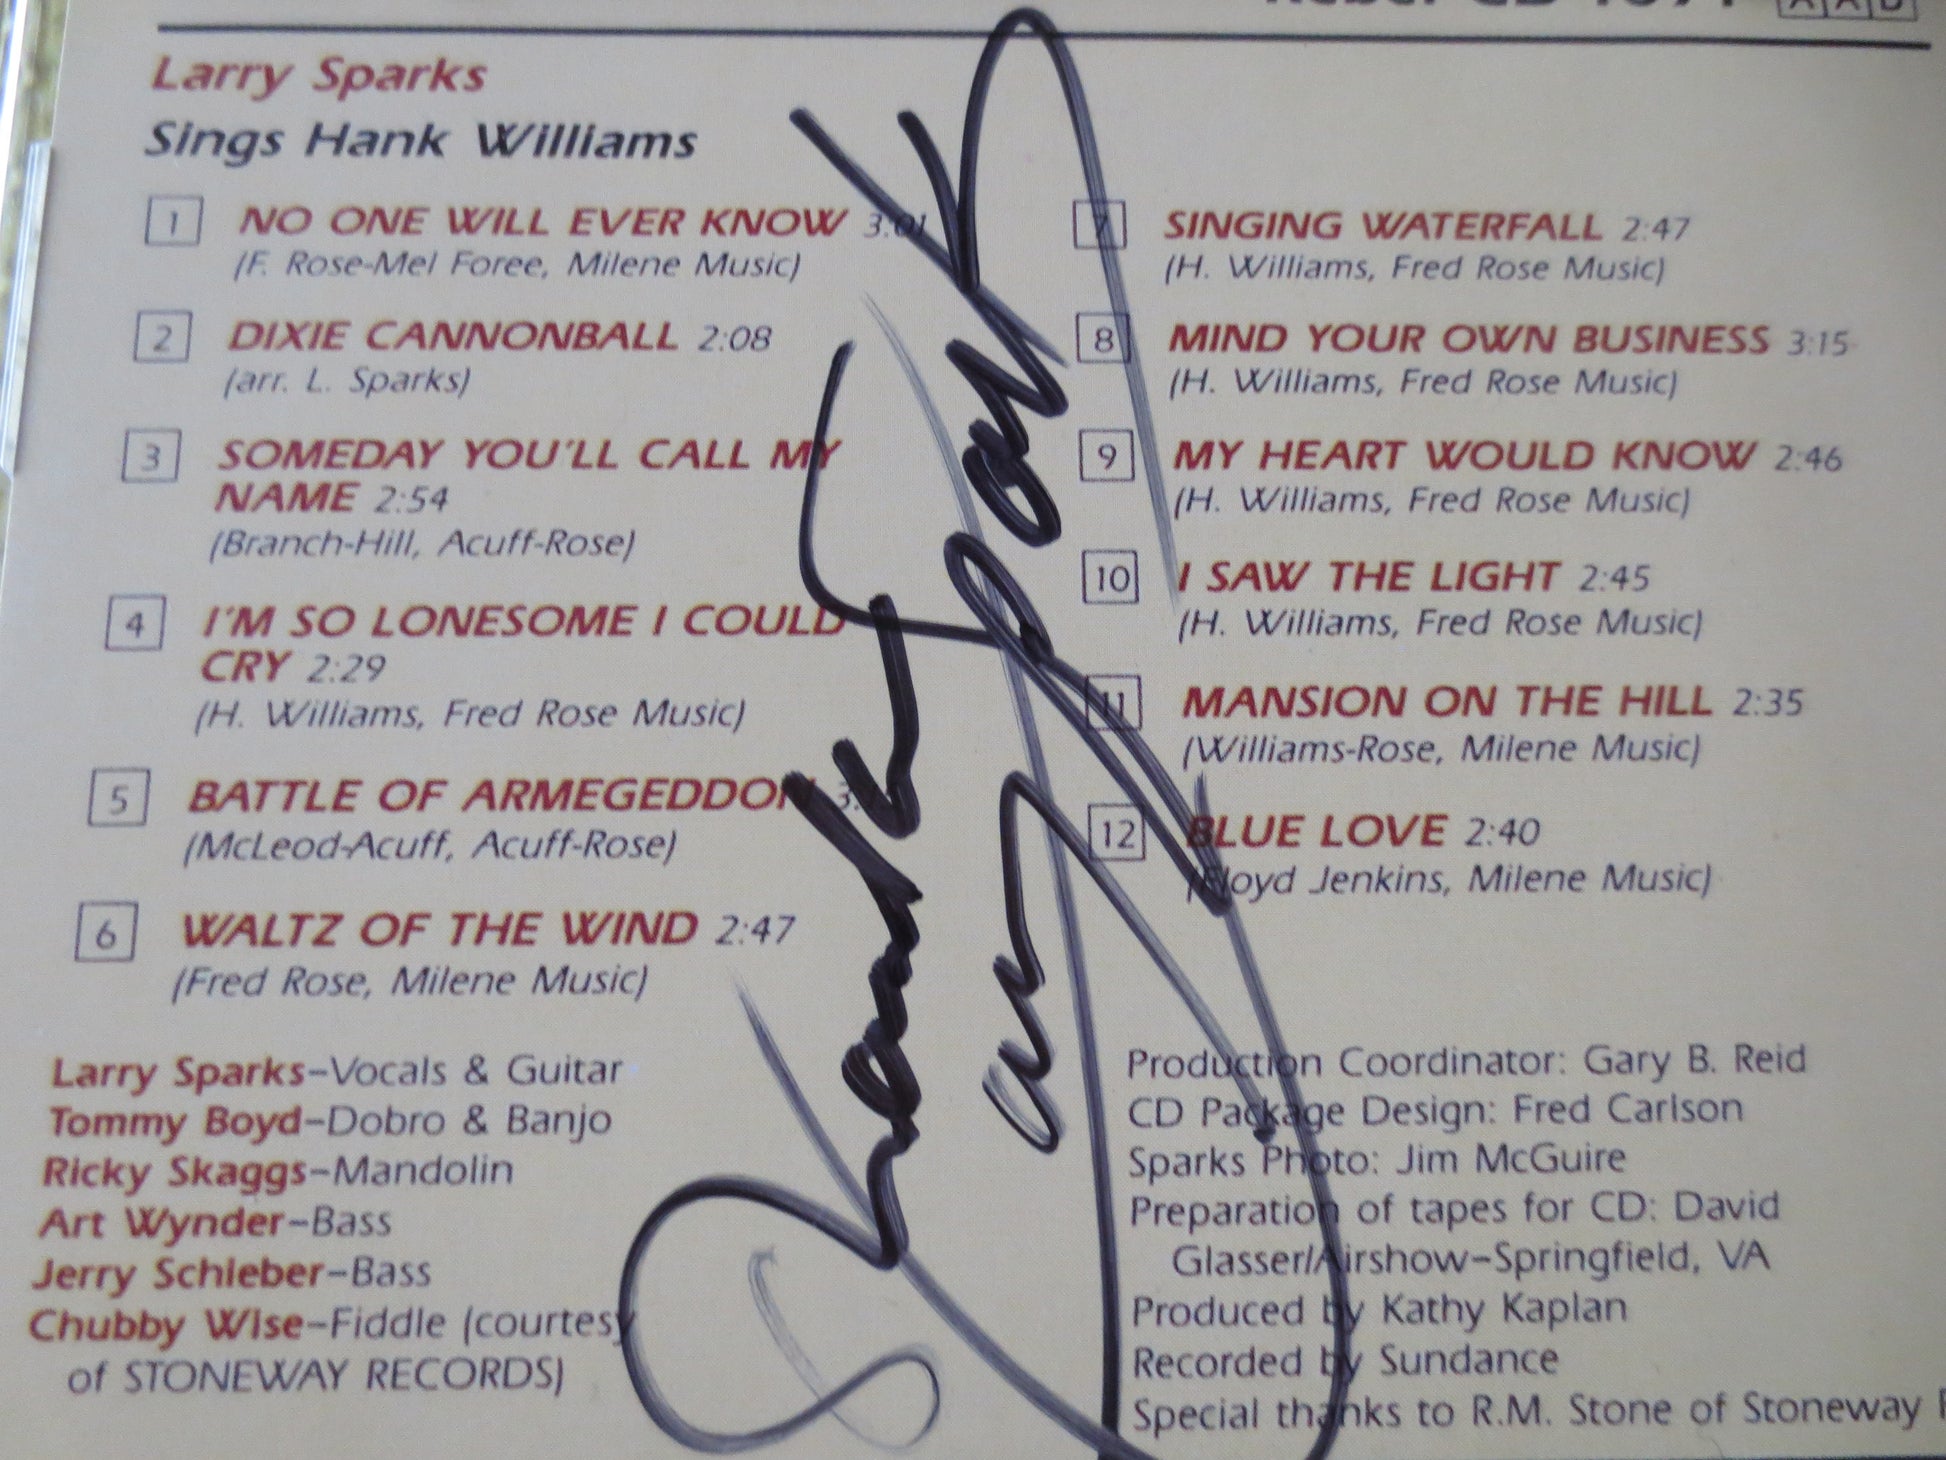 Larry Sparks
Sings Hank Williams
1 NO ONE WILL EVER KNOW 3:01
(F. Rose-Mel Foree, Milene Music)
2 DIXIE CANNONBALL 2:08
(arr. L. Sparks)
3 SOMEDAY YOU'LL CALL MY
NAME 2:54
(Branch-Hill, Acuff-Rose)
4 I'M SO LONESOME I COULD
CRY 2:29
(H. Williams, Fred Rose Music)
5 BATTLE OF ARMEGEDDON
(McLeod-Acuff, Acuff-Rose)
6 WALTZ OF THE WIND 2:47
(Fred Rose, Milene Music)
7 SINGING WATERFALL 2:47
(H. Williams, Fred Rose Music)
8 MIND YOUR OWN BUSINESS 3:15
(H. Williams, Fred Rose Music)
9 MY HEART WOULD KNOW 2:46
(H. Williams, Fred Rose Music)
10 I SAW THE LIGHT 2:45
(H. Williams, Fred Rose Music)
11 MANSION ON THE HILL 2:35
(Williams-Rose, Milene Music)
12 BLUE LOVE 2:40
(Floyd Jenkins, Milene Music)
Larry Sparks–Vocals & Guitar
Tommy Boyd–Dobro & Banjo
Ricky Skaggs–Mandolin
Art Wynder–Bass
Jerry Schleber–Bass
Chubby Wise–Fiddle (courtesy
of STONEWAY RECORDS)
Production Coordinator: Gary B. Reid
CD Package Design: Fred Carlson
Sparks Photo: Jim McGuire
Preparation of tapes for CD: David
Glasser/Airshow–Springfield, VA
Produced by Kathy Kaplan
Recorded by Sundance
Special thanks to R.M. Stone of Stoneway